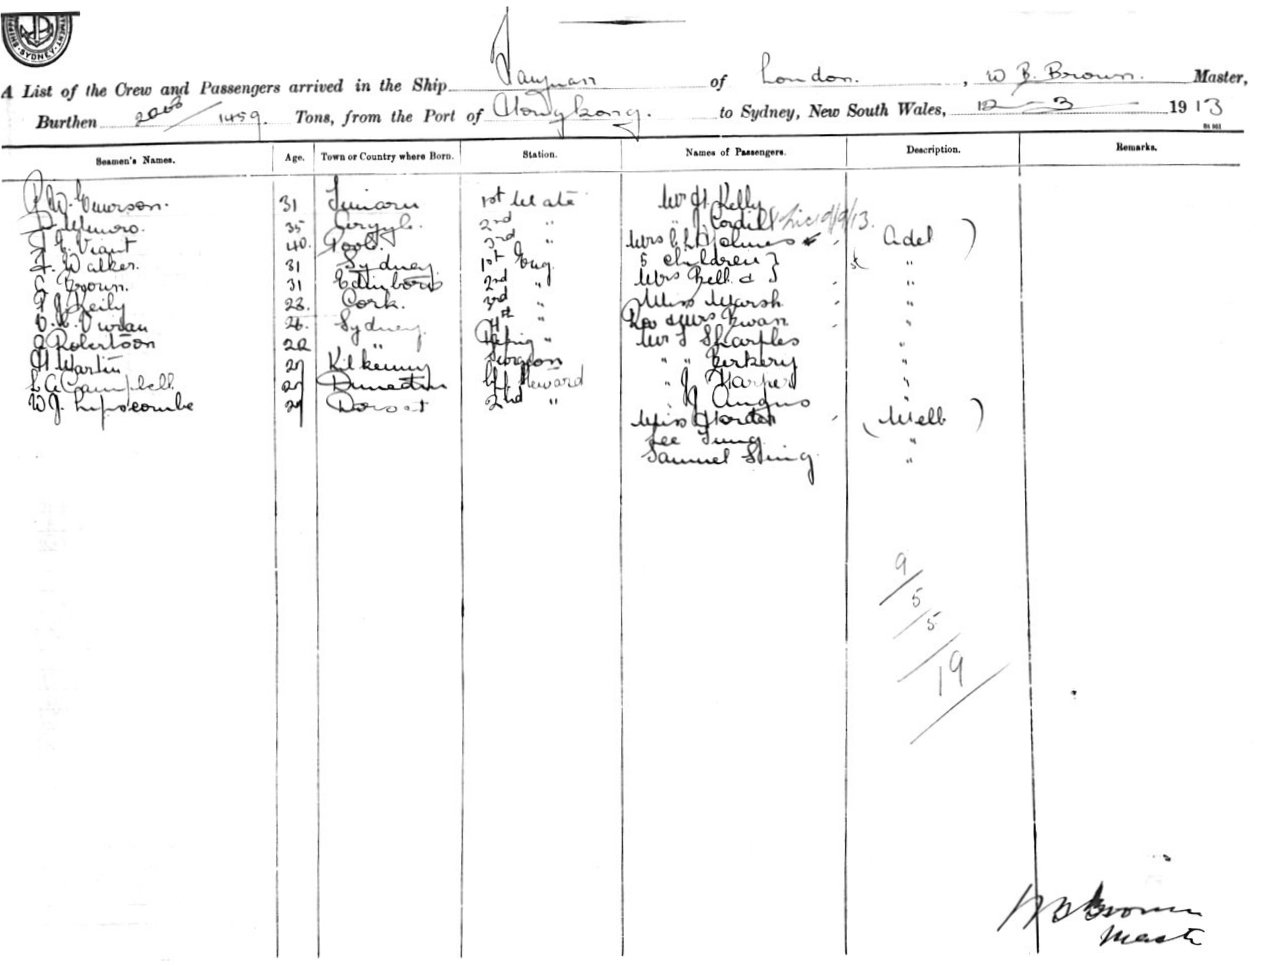 SYDNEY
A List of the Crew and Passengers arrived in the Ship Taiyuan of London. , W B. Brown. Master,
Burthen 2000/1459. Tons, from the Port of Hongkong. to Sydney, New South Wales, 12-3- 1913
Seamen's Names. Age. Town or Country where Born. Station. Names of Passengers. Description. Remarks.
Emerson. 31 1st Mate Mr H Kelly
D. Munro. 35 Argyle. 2nd " " J. Cordill 9/9/13.
Viant 40. Pool. 3rd " Mrs Holmes ( Adel )
J. Walker. 31 Sydney 1st Eng 5 children } "
Brown. 31 Edinboro 2nd " Mrs Bell & } "
Reily 28. Cork. 3rd " Miss Marsh "
26. Sydney 4th " Rev & Mrs Kwan "
Robertson 22 " " Mr Sharples "
H Martin 27 Kilkenny Surgeon " " Kerkery "
L A Campbell 27 Dunedin Steward " J Harper "
W J. Lipscombe 27 Dorset 2nd " " J Angus "
Miss ( Melb )
Lee Tung "
Samuel "
9
5
5
19
W B Brown
Master